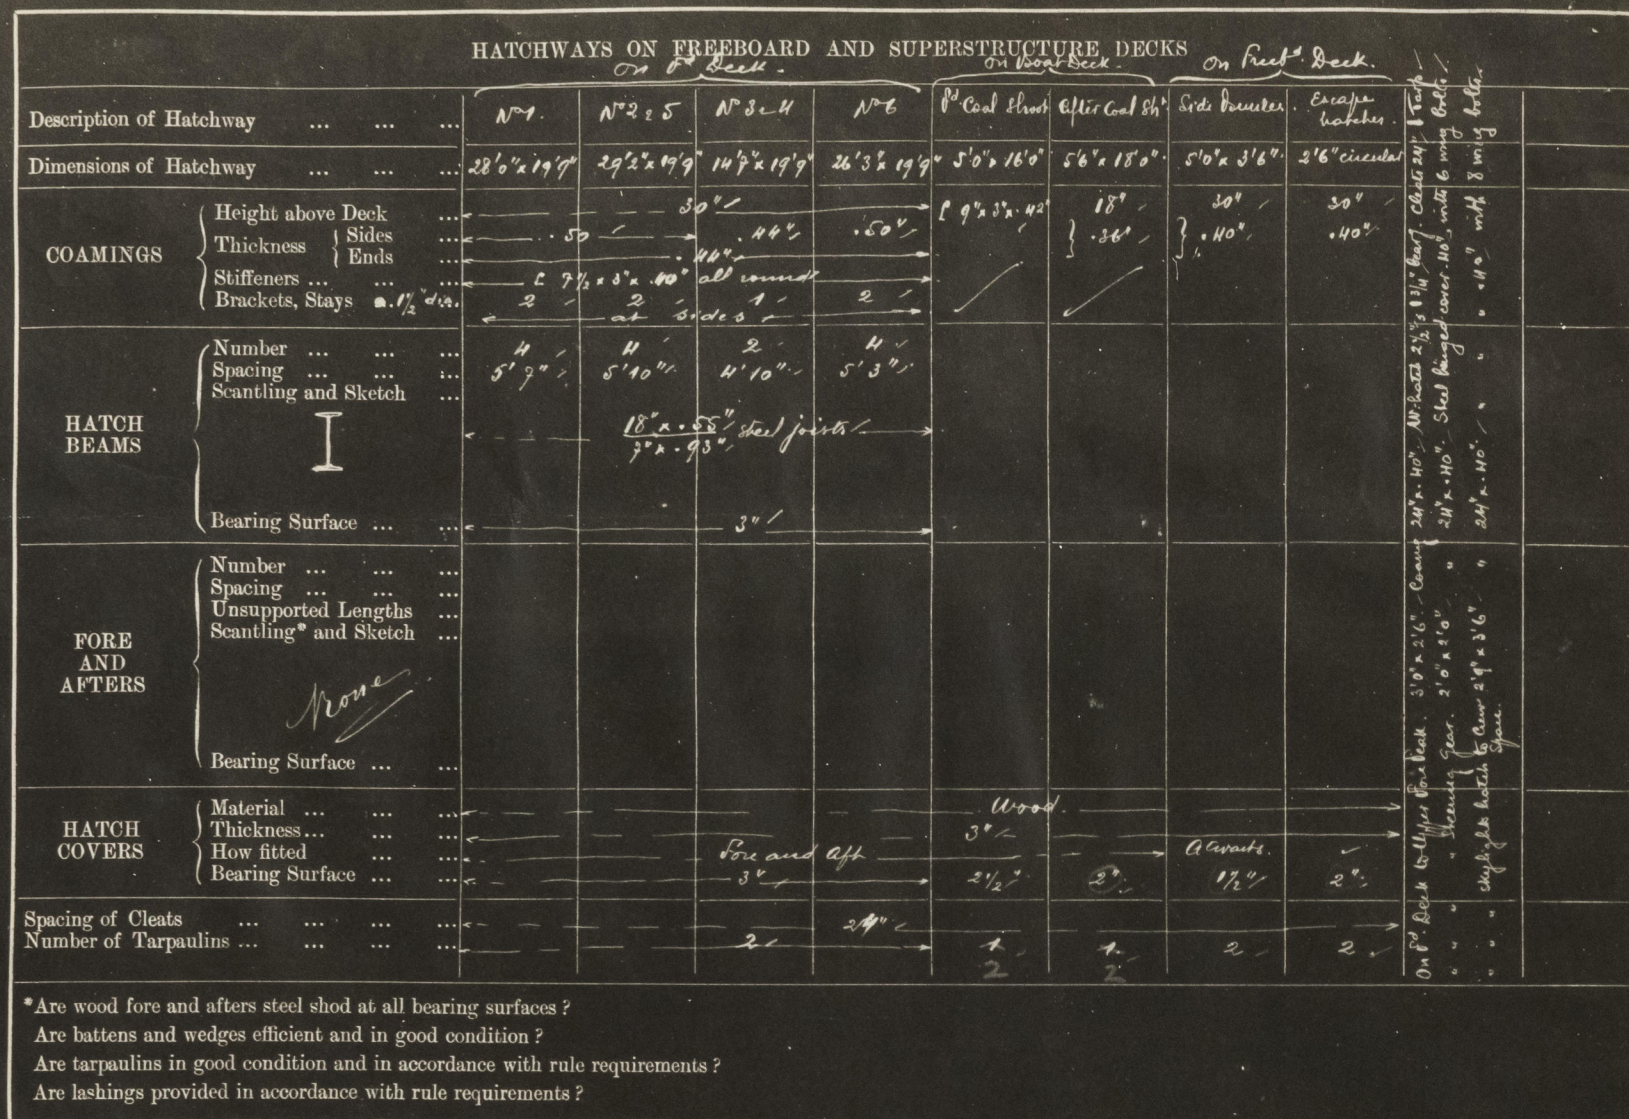 HATCHWAYS ON FREEBOARD AND SUPERSTRUCTURE DECKS
On Fd Deck. On Boat Deck. On Freebd. Deck.
Description of Hatchway ... ... ... No 1. No 2 & 5 No 3 & 4 No 6 Fd Coal Shoot After Coal Sht Side Bunker. Escape hatches.
Dimensions of Hatchway ... ... ... 28'0" x 19'9" 29'2" x 19'9" 14'7" x 19'9" 26'3" x 19'9" 5'0" x 16'0" 5'6" x 18'0" 5'0" x 3'6" 2'6" circular
COAMINGS
Height above Deck ... 30" [ 9" x 3" x .42" 18" 30" 30"
Thickness { Sides ... .50 .44" .50" } .36" } .40" .40"
Ends ... .44"
Stiffeners ... ... ... ... [ 7½ x 3" x .40" all round
Brackets, Stays 1½" dia. 2 2 1 2
at sides
HATCH BEAMS
Number ... ... ... 4 4 2 4
Spacing ... ... ... 5'7" 5'10" 4'10" 5'3"
Scantling and Sketch ...
18" x .55"
7" x .93" steel joists
Bearing Surface ... ... 3"
FORE AND AFTERS
Number ... ... ...
Spacing ... ... ...
Unsupported Lengths ...
Scantling* and Sketch ...
None
Bearing Surface ... ...
HATCH COVERS
Material ... ... ... Wood.
Thickness ... ... ... 3"
How fitted ... ... Fore and Aft
Bearing Surface ... ... 3" 2½" 2" 1½" 2"
Spacing of Cleats ... ... ... ... 24"
Number of Tarpaulins ... ... ... ... 2 1 1 2 2
2 2
On Fd. Deck to Upper Fore Peak. 3'0" x 2'6" Coaming 24" x .40". W. hatch 2½" & 3¼" bearg. Cleats 24" 1 Tarp.
" " " Steering Gear. 2'0" x 2'0" " 24" x .40". Steel hinged cover .40", with 6 wing bolts
" " " skylight hatch to Crew Space. 2'9" x 3'6" " 24" x .40". " " " .40" with 8 wing bolts.
*Are wood fore and afters steel shod at all bearing surfaces ?
Are battens and wedges efficient and in good condition ?
Are tarpaulins in good condition and in accordance with rule requirements ?
Are lashings provided in accordance with rule requirements ?